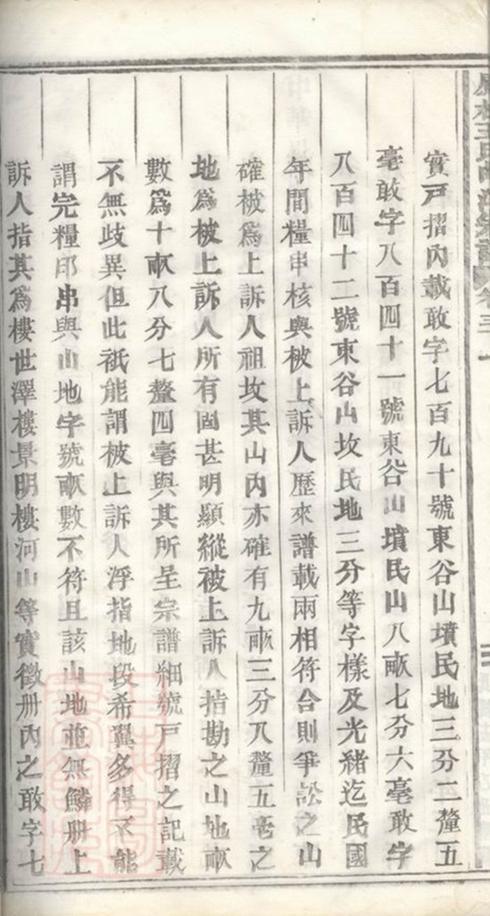 實戸摺內載敢字七百九十號東谷山墳民地三分二釐五
毫敢字八百四十一號東谷山墳民山八畝七分六毫敢字
八百四十二號東谷山坟民地三分等字樣及光緒迄民國
年間糧串核與被上訴人歷來譜載兩相符合則爭訟之山
確被爲上訴人祖坟其山內亦確有九畝三分八釐五毫之
地爲被上訴人所有固甚明顯縱被上訴人指勘之山地畝
數爲十畝八分七釐四毫與其所呈宗譜細號戸摺之記載
不無歧異但此祇能謂被上訴人浮指地段希冀多得不能
謂完糧邱串與山地字號畝數不符且該山地並無鱗册上
訴人指其爲樓世澤樓景明樓河山等實徵册內之敢字七